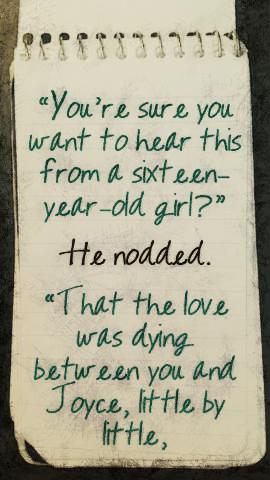 “You're sure you
want to hear this
from a sixteen-
year-old girl?”
He nodded.
“That the love
was dying
between you and
Joyce, little by
little,